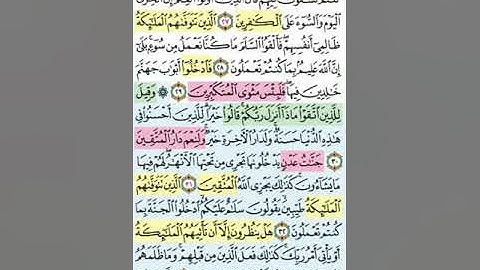 ٱلۡيَوۡمَ وَٱلسُّوٓءَ عَلَى ٱلۡكَٰفِرِينَ ٢٧ ٱلَّذِينَ تَتَوَفَّىٰهُمُ ٱلۡمَلَٰٓئِكَةُ
ظَالِمِيٓ أَنفُسِهِمۡۖ فَأَلۡقَوُاْ ٱلسَّلَمَ مَا كُنَّا نَعۡمَلُ مِن سُوٓءِۭۚ بَلَىٰٓ
إِنَّ ٱللَّهَ عَلِيمُۢ بِمَا كُنتُمۡ تَعۡمَلُونَ ٢٨ فَٱدۡخُلُوٓاْ أَبۡوَٰبَ جَهَنَّمَ
خَٰلِدِينَ فِيهَاۖ فَلَبِئۡسَ مَثۡوَى ٱلۡمُتَكَبِّرِينَ ٢٩ ۞ وَقِيلَ
لِلَّذِينَ ٱتَّقَوۡاْ مَاذَآ أَنزَلَ رَبُّكُمۡۚ قَالُواْ خَيۡرٗاۗ لِّلَّذِينَ أَحۡسَنُواْ فِي
هَٰذِهِ ٱلدُّنۡيَا حَسَنَةٞۚ وَلَدَارُ ٱلۡأٓخِرَةِ خَيۡرٞۚ وَلَنِعۡمَ دَارُ ٱلۡمُتَّقِينَ
٣٠ جَنَّٰتُ عَدۡنٖ يَدۡخُلُونَهَا تَجۡرِي مِن تَحۡتِهَا ٱلۡأَنۡهَٰرُۖ لَهُمۡ فِيهَا
مَا يَشَآءُونَۚ كَذَٰلِكَ يَجۡزِي ٱللَّهُ ٱلۡمُتَّقِينَ ٣١ ٱلَّذِينَ تَتَوَفَّىٰهُمُ
ٱلۡمَلَٰٓئِكَةُ طَيِّبِينَ يَقُولُونَ سَلَٰمٌ عَلَيۡكُمُ ٱدۡخُلُواْ ٱلۡجَنَّةَ بِمَا
كُنتُمۡ تَعۡمَلُونَ ٣٢ هَلۡ يَنظُرُونَ إِلَّآ أَن تَأۡتِيَهُمُ ٱلۡمَلَٰٓئِكَةُ
أَوۡ يَأۡتِيَ أَمۡرُ رَبِّكَۚ كَذَٰلِكَ فَعَلَ ٱلَّذِينَ مِن قَبۡلِهِمۡۚ وَمَا ظَلَمَهُمُ